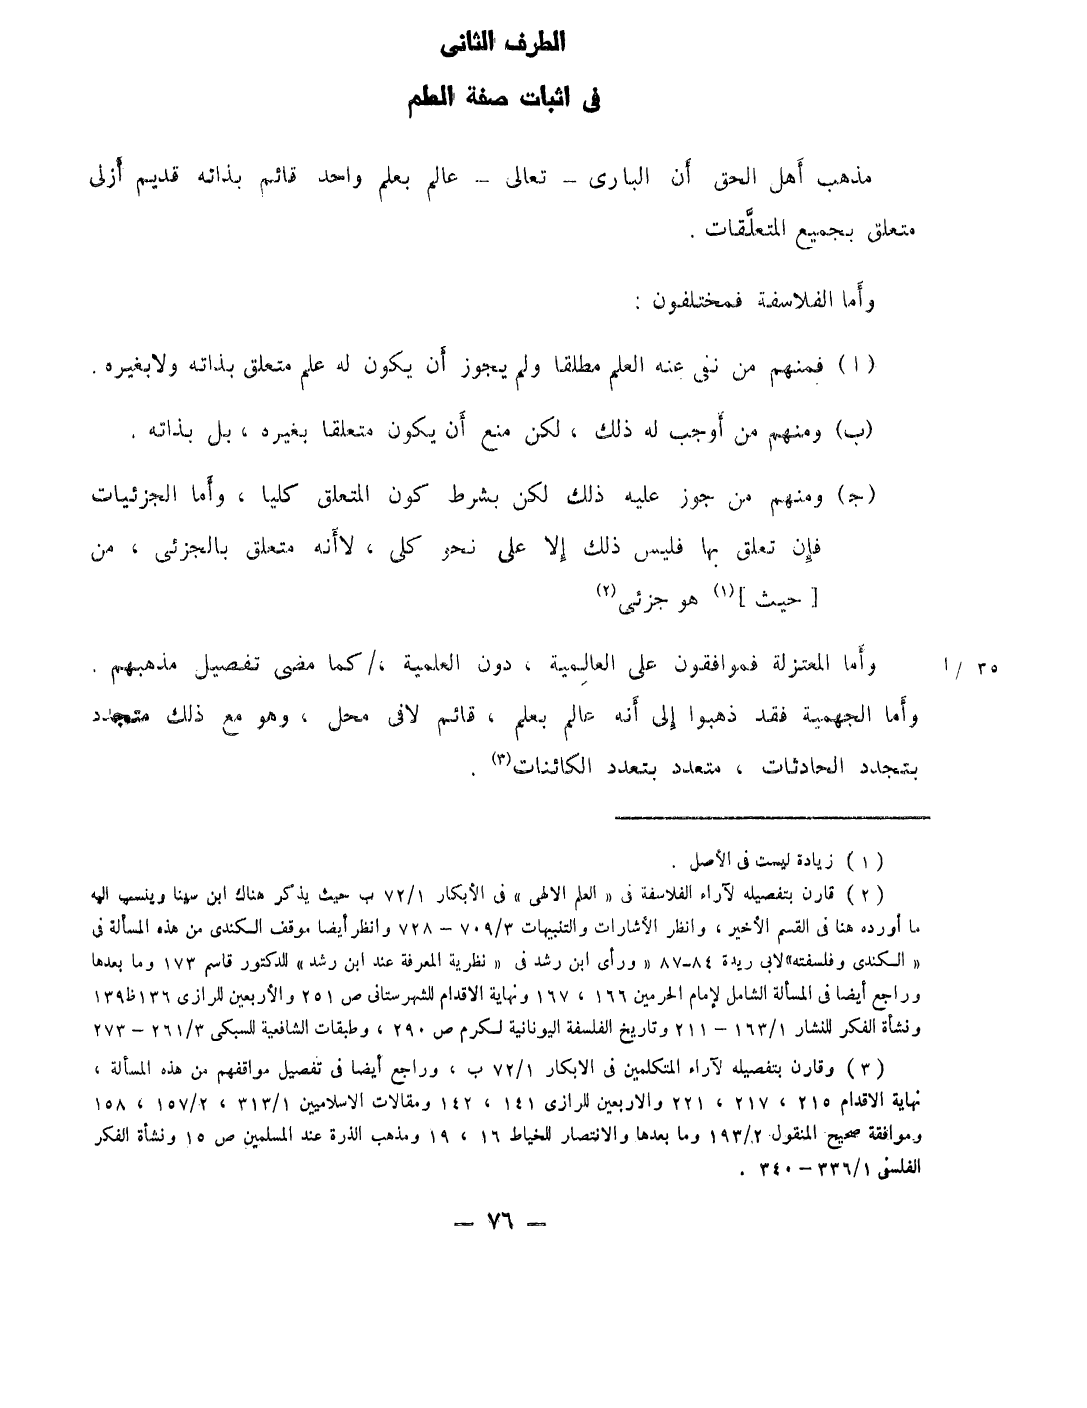 الطرف الثانى
فى اثبات صفة العلم
مذهب أَهل الحق أَن البارى – تعالى – عالم بعلم واحد قائم بذاته قديم أَزلى
متعلق بجميع المتعلَّقات .
وأَما الفلاسفة فمختلفون :
( ا ) فمنهم من نفى عنه العلم مطلقا ولم يجوز أَن يكون له علم متعلق بذاته ولابغيره .
(ب) ومنهم من أَوجب له ذلك ، لكن منع أَن يكون متعلقا بغيره ، بل بذاته .
(ج) ومنهم من جوز عليه ذلك لكن بشرط كون المتعلق كليا ، وأَما الجزئيات
فإِن تعلق بها فليس ذلك إِلا على نحو كلى ، لاأَنه متعلق بالجزئى ، من
[ حيث ](١) هو جزئى(٢)
وأَما المعتزلة فموافقون على العالمية ، دون العلمية ،/ كما مضى تفصيل مذهبهم . ٣٥ / ا
وأَما الجهمية فقد ذهبوا إِلى أَنه عالم بعلم ، قائم لافى محل ، وهو مع ذلك متجدد
بتجدد الحادثات ، متعدد بتعدد الكائنات(٣) .
( ١ ) زيادة ليست فى الأصل .
( ٢ ) قارن بتفصيله لآراء الفلاسفة فى « العلم الالهى » فى الأبكار ٧٢/١ ب حيث يذكر هناك ابن سينا وينسب اليه
ما أورده هنا فى القسم الأخير ، وانظر الأشارات والتنبيهات ٧٠٩/٣ – ٧٢٨ وانظر أيضا موقف الكندى من هذه المسألة فى
« الكندى وفلسفته» لابى ريدة ٨٤-٨٧ « ورأى ابن رشد فى « نظرية المعرفة عند ابن رشد » للدكتور قاسم ١٧٣ وما بعدها
وراجع أيضا فى المسألة الشامل لإمام الحرمين ١٦٦ ، ١٦٧ ونهاية الاقدام للشهرستانى ص ٢٥١ والأربعين للرازى ١٣٦ظ١٣٩
ونشأة الفكر للنشار ١٦٣/١ – ٢١١ وتاريخ الفلسفة اليونانية لكرم ص ٢٩٠ ، وطبقات الشافعية للسبكى ٢٦١/٣ – ٢٧٣
( ٣ ) وقارن بتفصيله لآراء المتكلمين فى الابكار ٧٢/١ ب ، وراجع أيضا فى تفصيل مواقفهم من هذه المسألة ،
نهاية الاقدام ٢١٥ ، ٢١٧ ، ٢٢١ والاربعين للرازى ١٤١ ، ١٤٢ ومقالات الاسلاميين ٣١٣/١ ، ١٥٧/٢ ، ١٥٨
وموافقة صحيح المنقول ١٩٣/٢ وما بعدها والانتصار للخياط ١٦ ، ١٩ ومذهب الذرة عند المسلمين ص ١٥ ونشأة الفكر
الفلسفى ٣٣٦/١ – ٣٤٠ .
– ٧٦ –